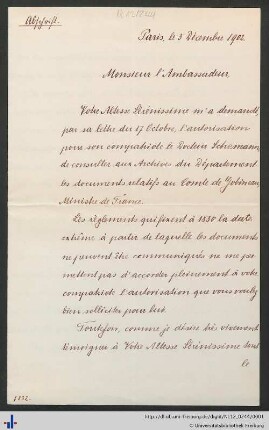 Abschrift.
Paris, le 3 Décembre 1902
Monsieur l'Ambassadeur
Votre Altesse Sérénissime m'a demandé,
par sa lettre du 17 Octobre, l'autorisation
pour son compatriote le Docteur Schemann,
de consulter aux Archives du Département
les documents relatifs au Comte de Gobineau
Ministre de France.
Les règlements qui fixent à 1830 la date
extrême à partir de laquelle les documents
ne peuvent être communiqués ne me per-
mettent pas d'accorder pleinement à votre
compatriote l'autorisation que vous voulez
bien solliciter pour lui.
Toutefois, comme je désire très vivement
témoigner à Votre Altesse Sérénissime tout
le
© Universitätsbibliothek Freiburg